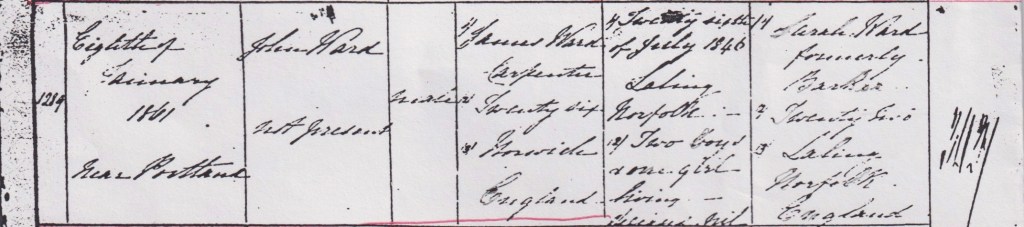 1289
Eighth of
January
1861
Near Portland
John Ward
not present
male
1) James Ward
Carpenter
2) Twenty six
3) Norwich
England
1) Twenty sixth
of July 1846
Laling
Norfolk
2) Two boys
& one girl
living
1) Sarah Ward
formerly
Barker
2) Twenty
3) Laling
Norfolk
England